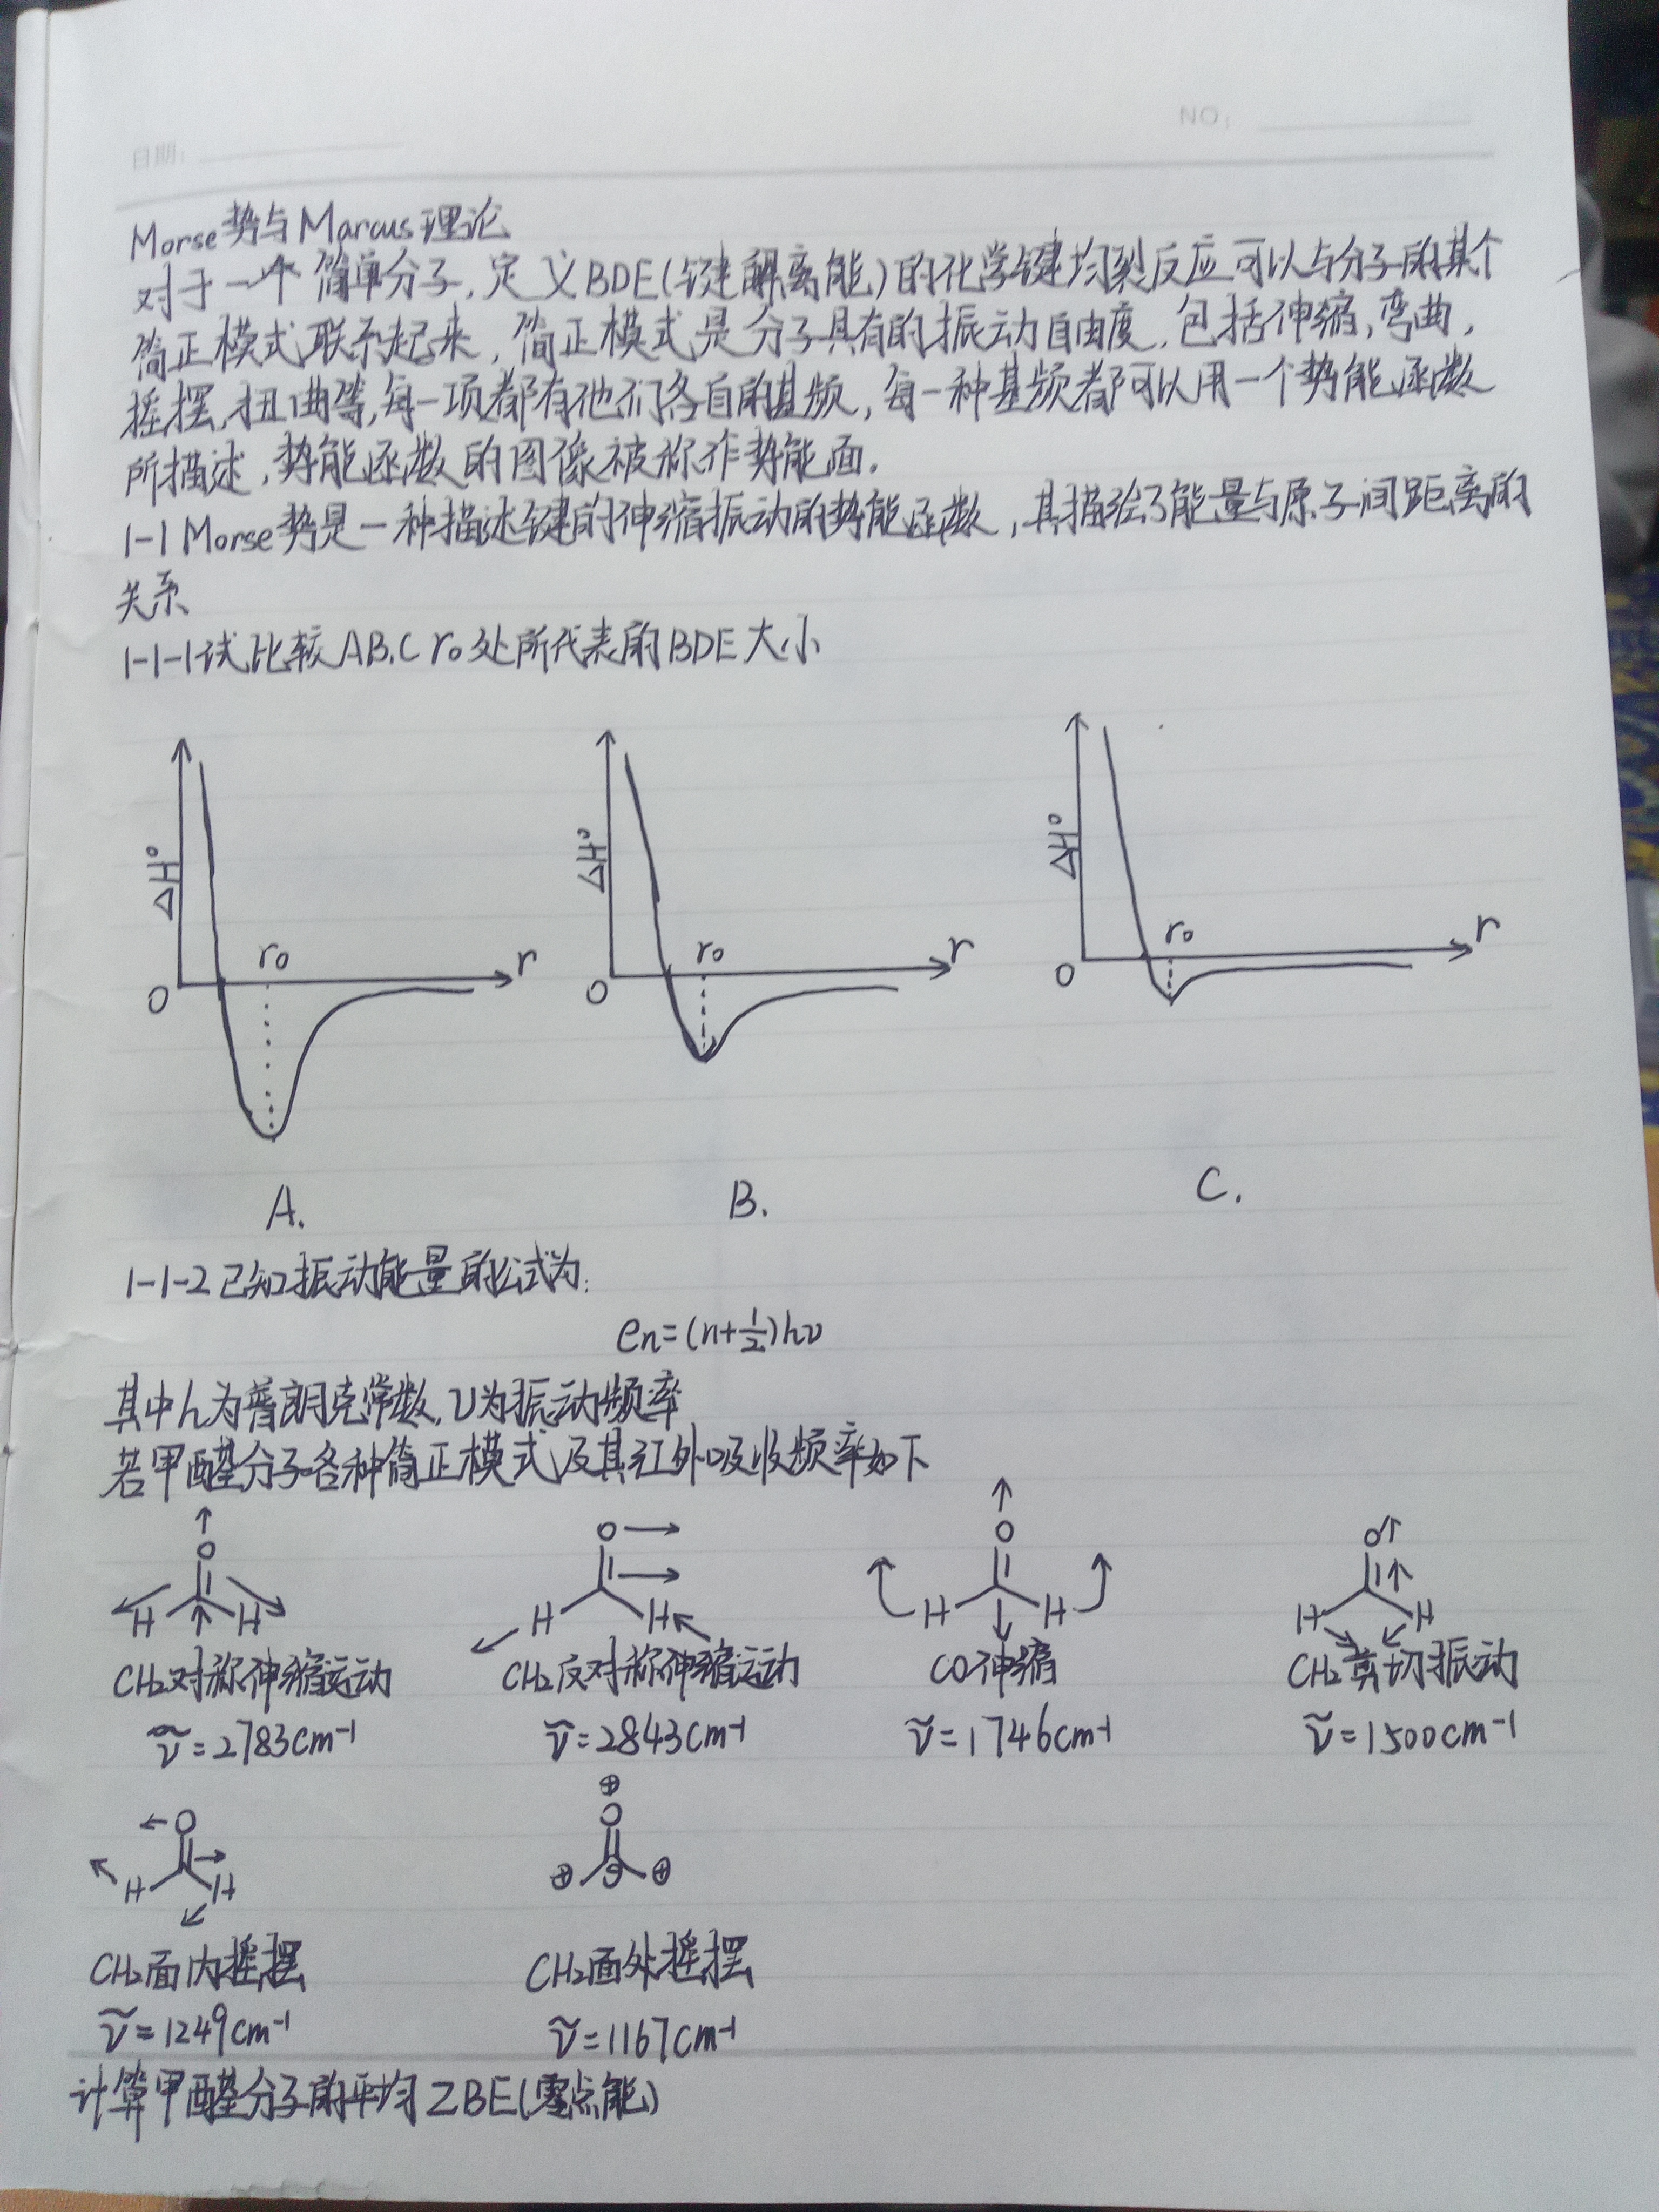 日期:
NO:
Morse势与Marcus理论
对于一个简单分子,定义BDE(键解离能)的化学键均裂反应可以与分子的某个
简正模式联系起来,简正模式是分子具有的振动自由度,包括伸缩,弯曲,
摇摆,扭曲等,每一项都有他们各自的基频,每一种基频都可以用一个势能函数
所描述,势能函数的图像被称作势能面。
1-1 Morse势是一种描述键的伸缩振动的势能函数,其描绘了能量与原子间距离的
关系
1-1-1试比较A,B,C r₀处所代表的BDE大小
ΔH° r₀ r O
ΔH° r₀ r O
ΔH° r₀ r O
A. B. C.
1-1-2已知振动能量的公式为:
en=(n+1/2)hν
其中h为普朗克常数,ν为振动频率
若甲醛分子各种简正模式及其红外吸收频率如下
O H H
O H H
O H H
O H H
CH₂对称伸缩运动 CH₂反对称伸缩运动 CO伸缩 CH₂剪切振动
ν̃=2783cm⁻¹ ν̃=2843cm⁻¹ ν̃=1746cm⁻¹ ν̃=1500cm⁻¹
O H H
⊕ O ⊕ ⊕
CH₂面内摇摆 CH₂面外摇摆
ν̃=1249cm⁻¹ ν̃=1167cm⁻¹
计算甲醛分子的平均ZBE(零点能)